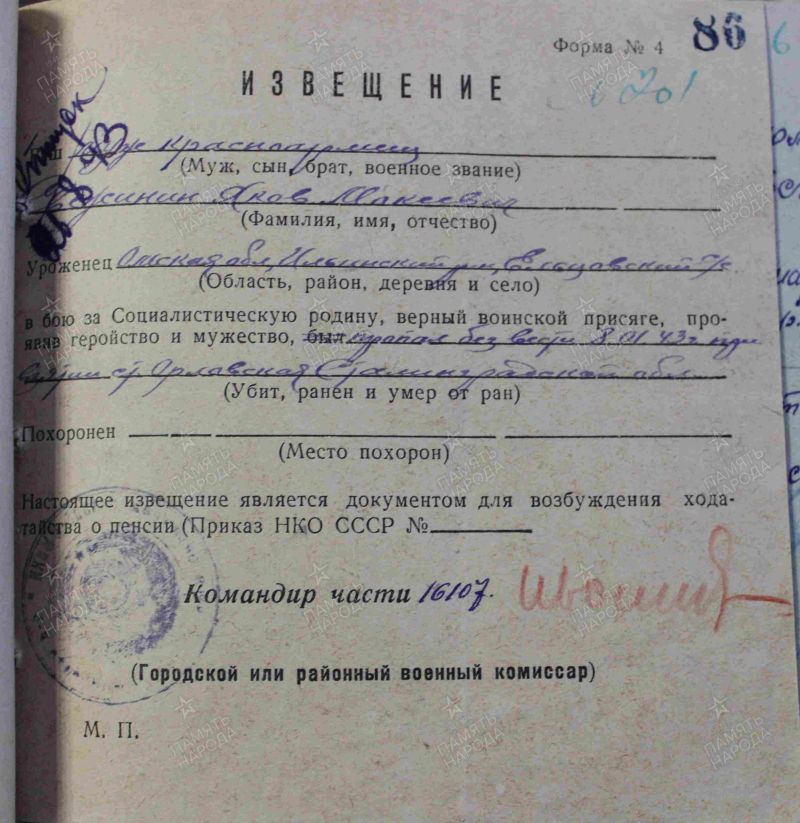 Форма № 4
86
ИЗВЕЩЕНИЕ
1701
Ваш муж красноармеец
(Муж, сын, брат, военное звание)
Яков Моисеевич
(Фамилия, имя, отчество)
Уроженец Омская обл, Ильинский р-н, Ельцовский с/с
(Область, район, деревня и село)
в бою за Социалистическую родину, верный воинской присяге, про-
явив геройство и мужество, был пропал без вести 8.01.43г при
ст. Орловская Сталинградской обл.
(Убит, ранен и умер от ран)
Похоронен
(Место похорон)
Настоящее извещение является документом для возбуждения хода-
тайства о пенсии (Приказ НКО СССР №
Командир части 16107.
(Городской или районный военный комиссар)
М. П.
ПАМЯТЬ НАРОДА